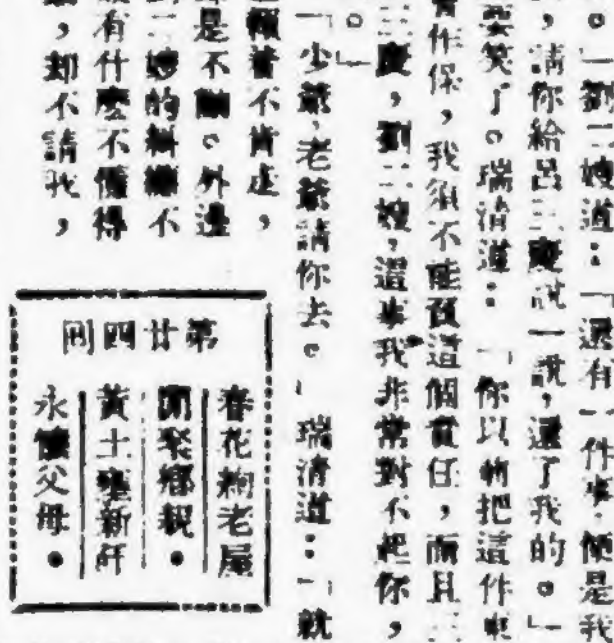 。」劉二嫂道：「還有一件事，便是我
，請你給呂三慶說一說，還了我的。」
要笑了。瑞清道：「你以前把這件事
作保，我須不能負這個責任，而且三
三慶，劉二嫂，這事我非常對不起你，
。」
「少爺，老爺請你去。」瑞清道：「就
着不肯走，
是不。外邊
二嫂的不
有什麼不懂得
，却不請我，
第廿四回
春花老屋
聚鄉親。
黃土新
永懷父母。